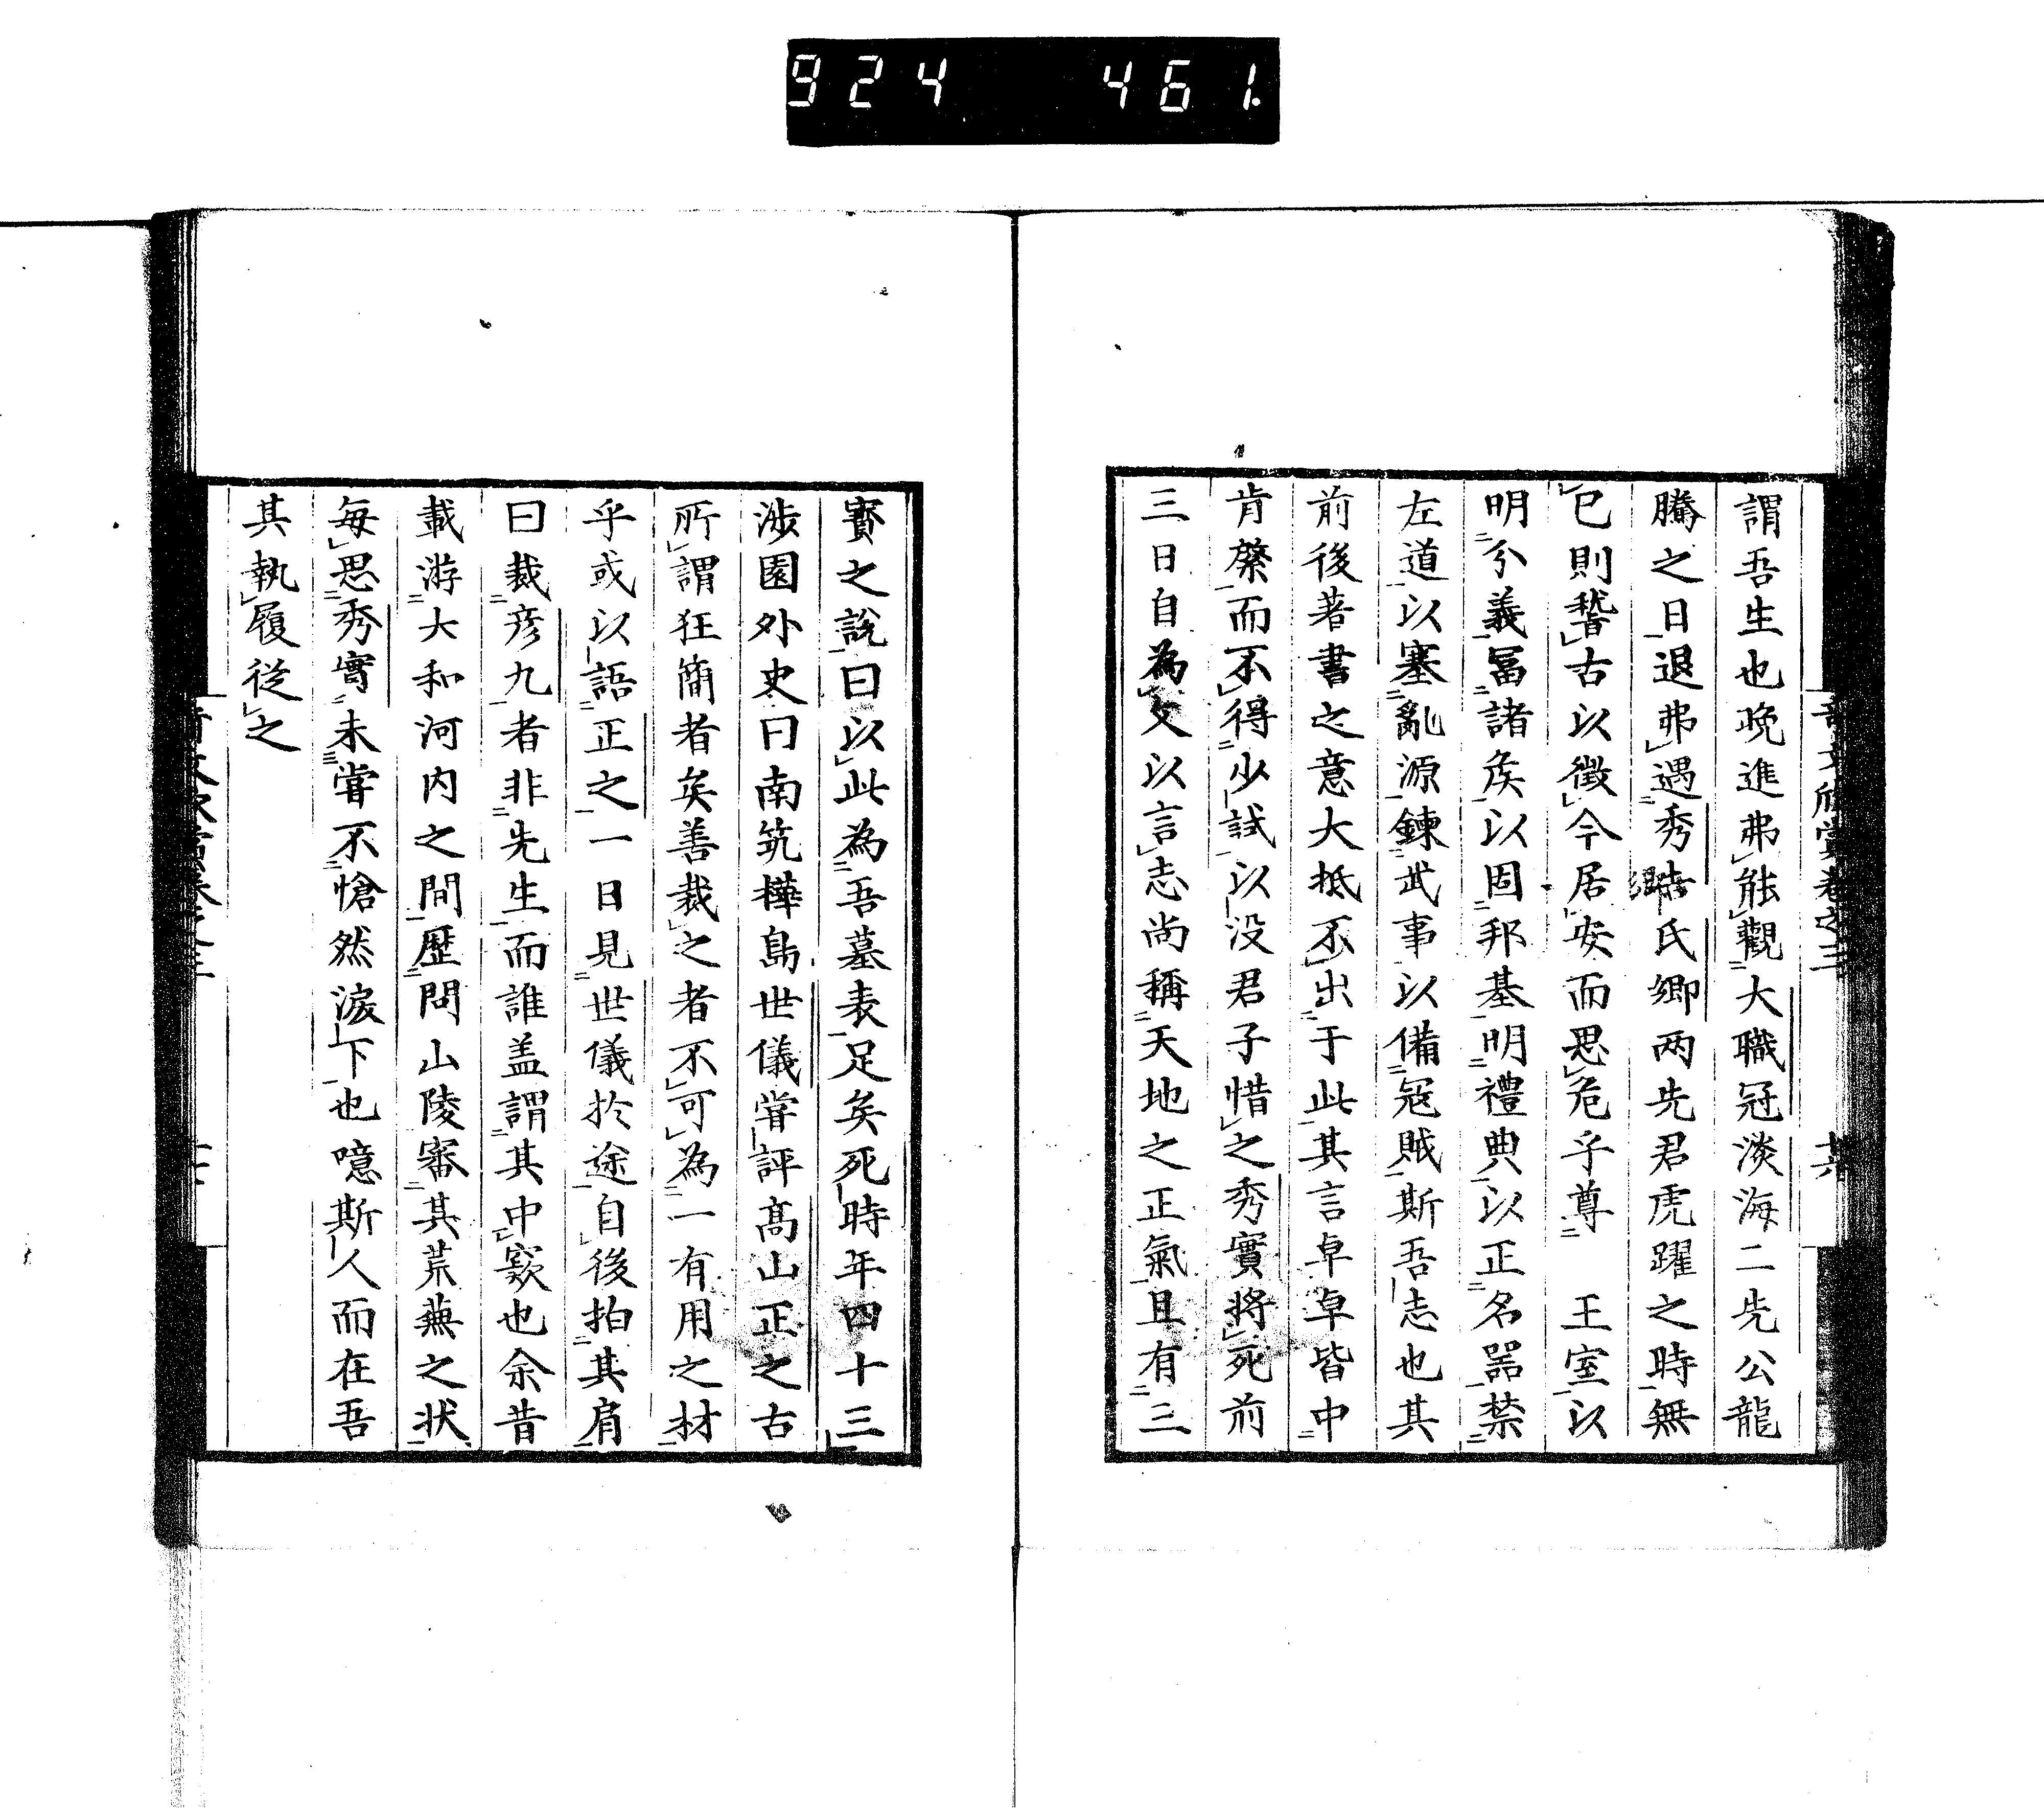 924 461.
謂吾生也晚進弗能觀大職冠淡海二先公龍
騰之日退弗遇秀皓氏卿両先君虎躍之時無
已則稽古以徴今居安而思危乎尊 王室以
明分義冨諸矦以固邦基明禮典以正名噐禁
左道以塞亂源錬武事以備冦賊斯吾志也其
前後著書之意大抵不出于此其言卓卓皆中
肯綮而不得少試以没君子惜之秀實將死前
三日自為文以言志尚稱天地之正氣且有三
寳之說曰以此為吾墓表足矣死時年四十三
渉園外史曰南筑樺島世儀甞評髙山正之古
所謂狂簡者矣善裁之者不可為一有用之材
乎或以語正之一日見世儀於途自後拍其肩
曰裁彦九者非先生而誰盖謂其中窽也余昔
載游大和河内之間歴問山陵審其荒蕪之状
毎思秀實未甞不愴然淚下也噫斯人而在吾
其執履從之